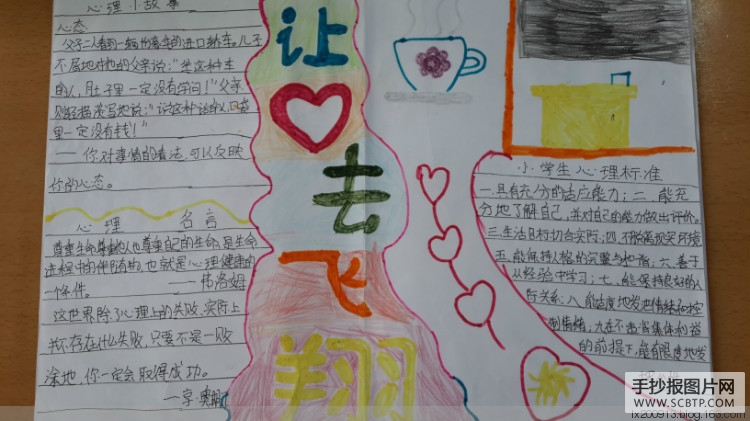 心理小故事
心态
父子二人看到一辆十分豪华的进口轿车。儿子
不屑地对他的父亲说:“坐这种车
的人,肚子里一定没有学问!”父亲
则轻描淡写地说:“说这种话的人,口袋
里一定没有钱!”
——你对事情的看法,可以反映
你的心态。
心理 名言
尊重生命尊重他人也尊重自己的生命,是生命
进程中的伴随物,也就是心理健康的
一个条件。——弗洛姆
这世界除了心理上的失败,实际上
并不存在什么失败,只要不是一败
涂地,你一定会取得成功。
——亨·奥斯
让
去
飞
翔
小学生心理标准
一.具有充分的适应能力;二.能充
分地了解自己,并对自己的能力做出评价。
三.生活目标切合实际;四.不脱离现实环境
五.能保持人格的完整与和谐;六.善于
从经验中学习;七.能保持良好的人
际关系;八.能适度地发泄情绪和控
制情绪;九.在不违背集体利益
的前提下,能有限度地发
手抄报图片网
WWW.SCBTP.COM
lx200913.blog.163.com